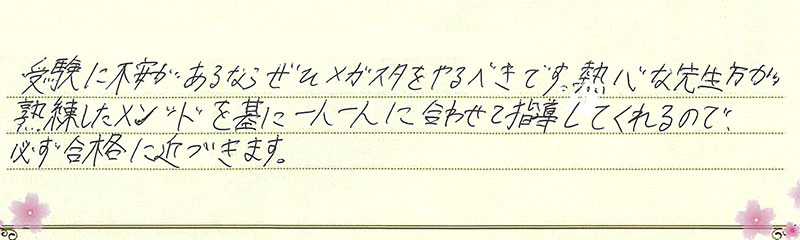 受験に不安があるならぜひメガスタをやるべきです。熱心な先生方から
熟練したメソッドを基に一人一人に合わせて指導してくれるので、
必ず合格に近づきます。